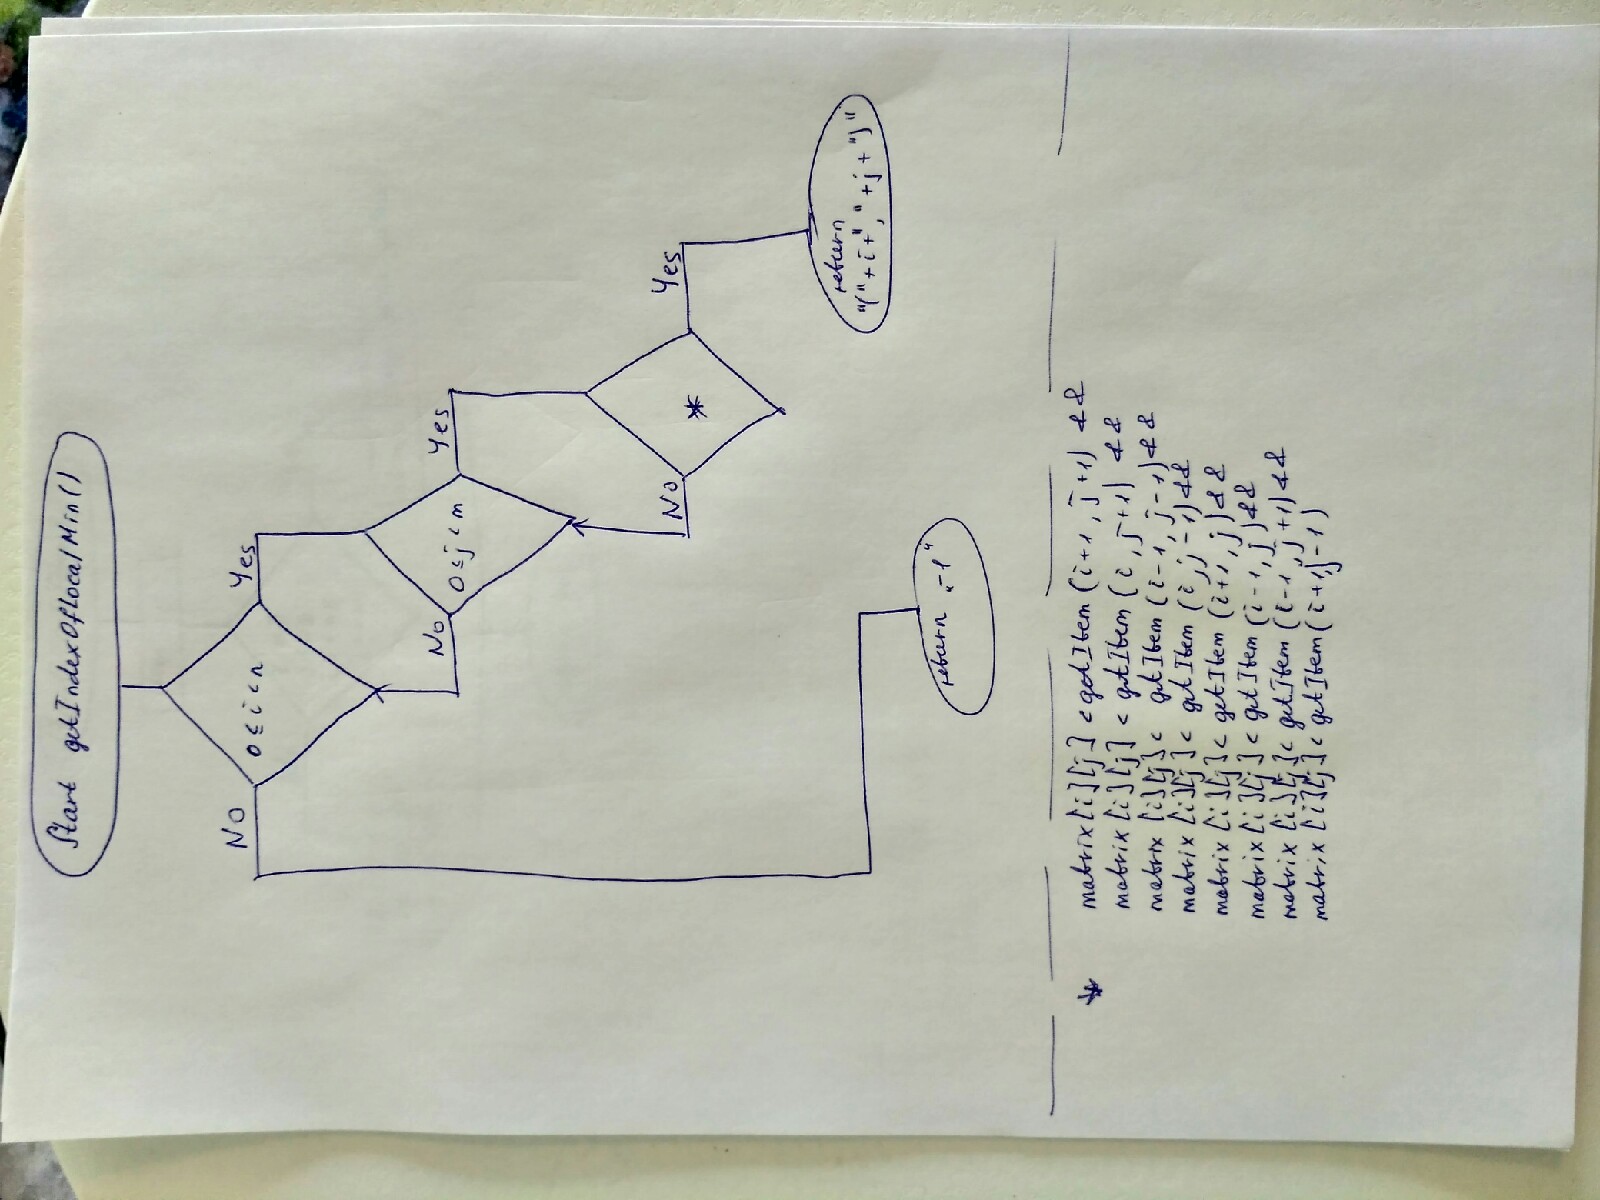 Start getIndexOfLocalMin()
Yes
0 ≤ i < n
No
Yes
0 ≤ j < m
No
Yes
*
No
return
"(" + i + "," + j + ")"
return "-1"
* matrix[i][j] < getItem(i+1, j+1) &&
matrix[i][j] < getItem(i, j+1) &&
matrix[i][j] < getItem(i-1, j-1) &&
matrix[i][j] < getItem(i, j-1) &&
matrix[i][j] < getItem(i+1, j) &&
matrix[i][j] < getItem(i-1, j) &&
matrix[i][j] < getItem(i-1, j+1) &&
matrix[i][j] < getItem(i+1, j-1)